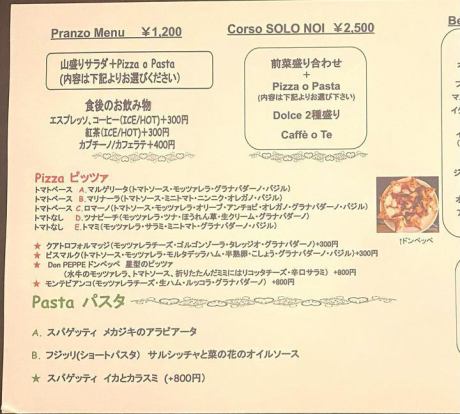 Pranzo Menu　¥1,200
山盛りサラダ+Pizza o Pasta
(内容は下記よりお選びください)
食後のお飲み物
エスプレッソ、コーヒー(ICE/HOT)+300円
紅茶(ICE/HOT)+300円
カプチーノ/カフェラテ+400円
Corso SOLO NOI　¥2,500
前菜盛り合わせ
+
Pizza o Pasta
(内容は下記よりお選び下さい)
Dolce 2種盛り
Caffè o Te
Pizza ピッツァ
トマトベース A.マルゲリータ(トマトソース・モッツァレラ・グラナパダーノ・バジル)
トマトベース B.マリナーラ(トマトソース・ミニトマト・ニンニク・オレガノ・バジル)
トマトベース C.ロマーノ(トマトソース・モッツァレラ・オリーブ・アンチョビ・オレガノ・グラナパダーノ・バジル)
トマトなし D.ツナピーチ(モッツァレラ・ツナ・ほうれん草・生クリーム・グラナパダーノ)
トマトなし E.トミ(モッツァレラ・サラミ・ミニトマト・グラナパダーノ・バジル)
★ クアトロフォルマッジ(モッツァレラチーズ・ゴルゴンゾーラ・タレッジオ・グラナパダーノ)+300円
★ ビスマルク(トマトソース・モッツァレラ・モルタデッラハム・半熟卵・こしょう・グラナパダーノ・バジル)+300円
★ Don PEPPE ドンペッペ 星型のピッツァ
(水牛のモッツァレラ、トマトソース、折りたたんだミミにはリコッタチーズ・辛口サラミ) +800円
★ モンテビアンコ(モッツァレラチーズ・生ハム・ルッコラ・グラナパダーノ) +800円
↑ドンペッペ
Pasta パスタ
A. スパゲッティ メカジキのアラビアータ
B. フジッリ(ショートパスタ) サルシッチャと菜の花のオイルソース
★ スパゲッティ イカとカラスミ (+800円)